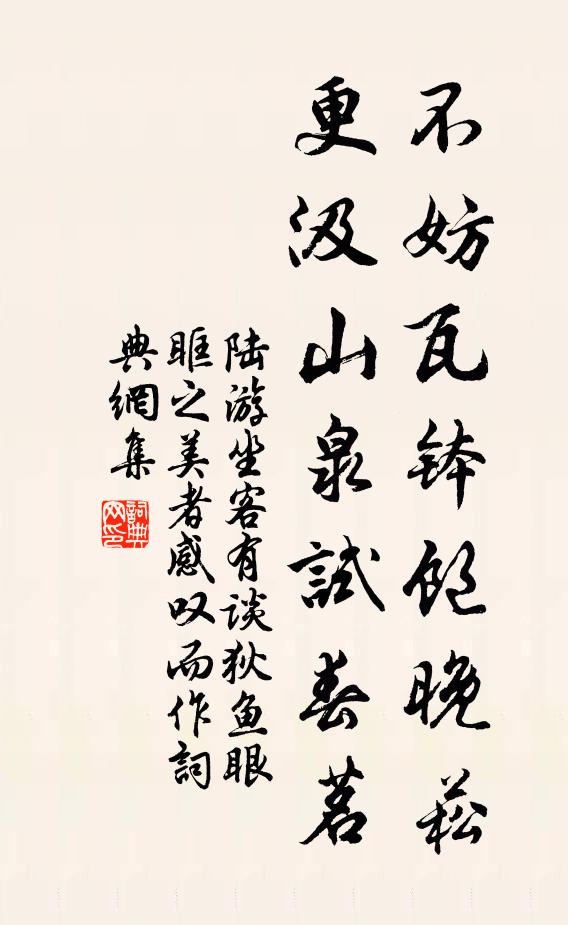 不妨瓦钵饤晚菘
更汲山泉試春茗
陆游坐客有谈狄鱼眼
眶之美者感叹而作詞
典網集
詞典网印